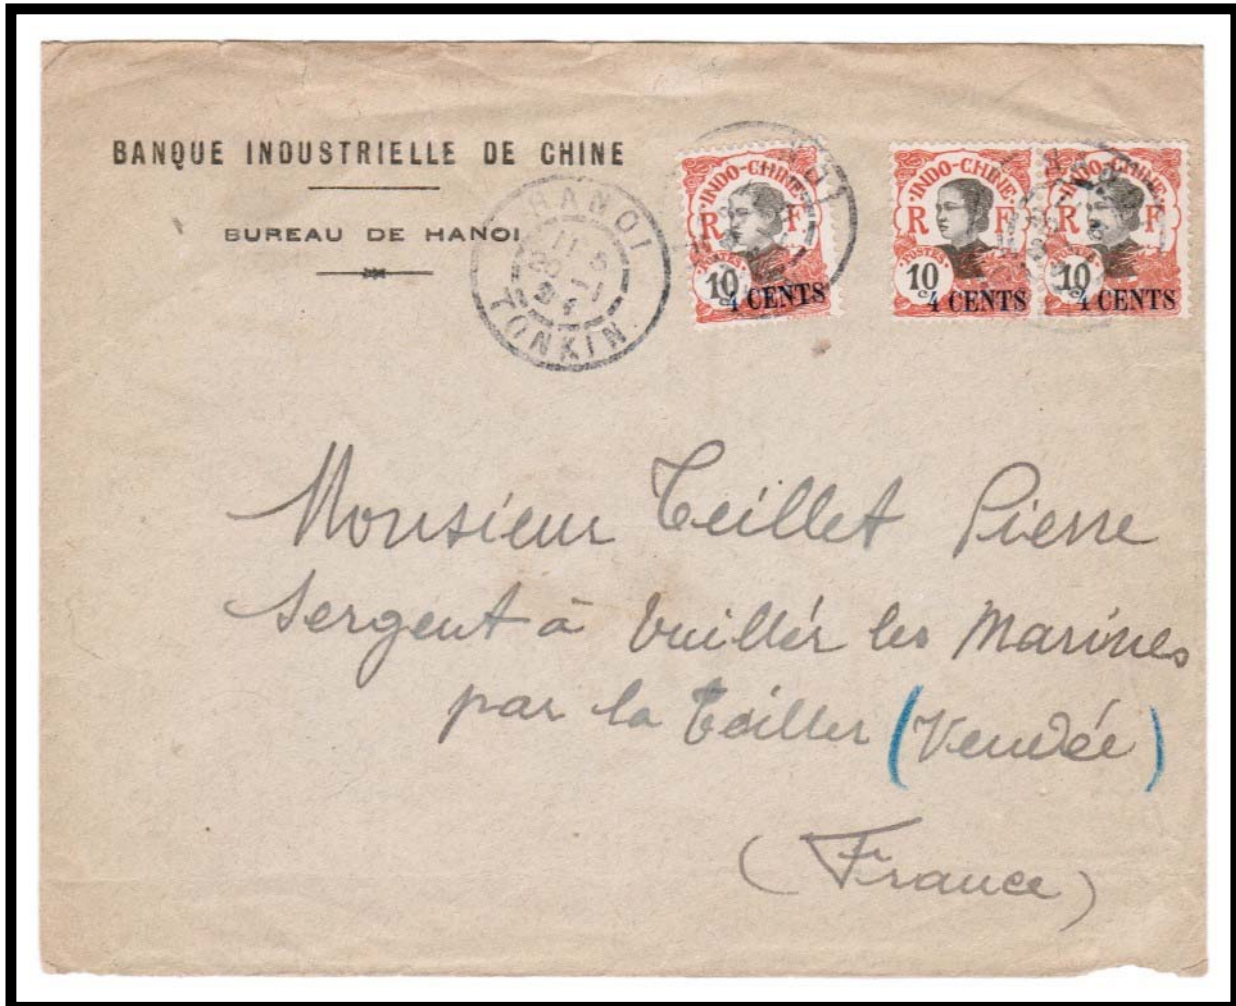 BANQUE INDUSTRIELLE DE CHINE
BUREAU DE HANOI
HANOI
11 5
20 -1
21
TONKIN
INDO-CHINE
R F
POSTES
10 c
4 CENTS
INDO-CHINE
R F
POSTES
10 c
4 CENTS
INDO-CHINE
R F
POSTES
10 c
4 CENTS
Monsieur Teillet Pierre
Sergent à Vuillér les Marines
par la (Vendée)
(France)